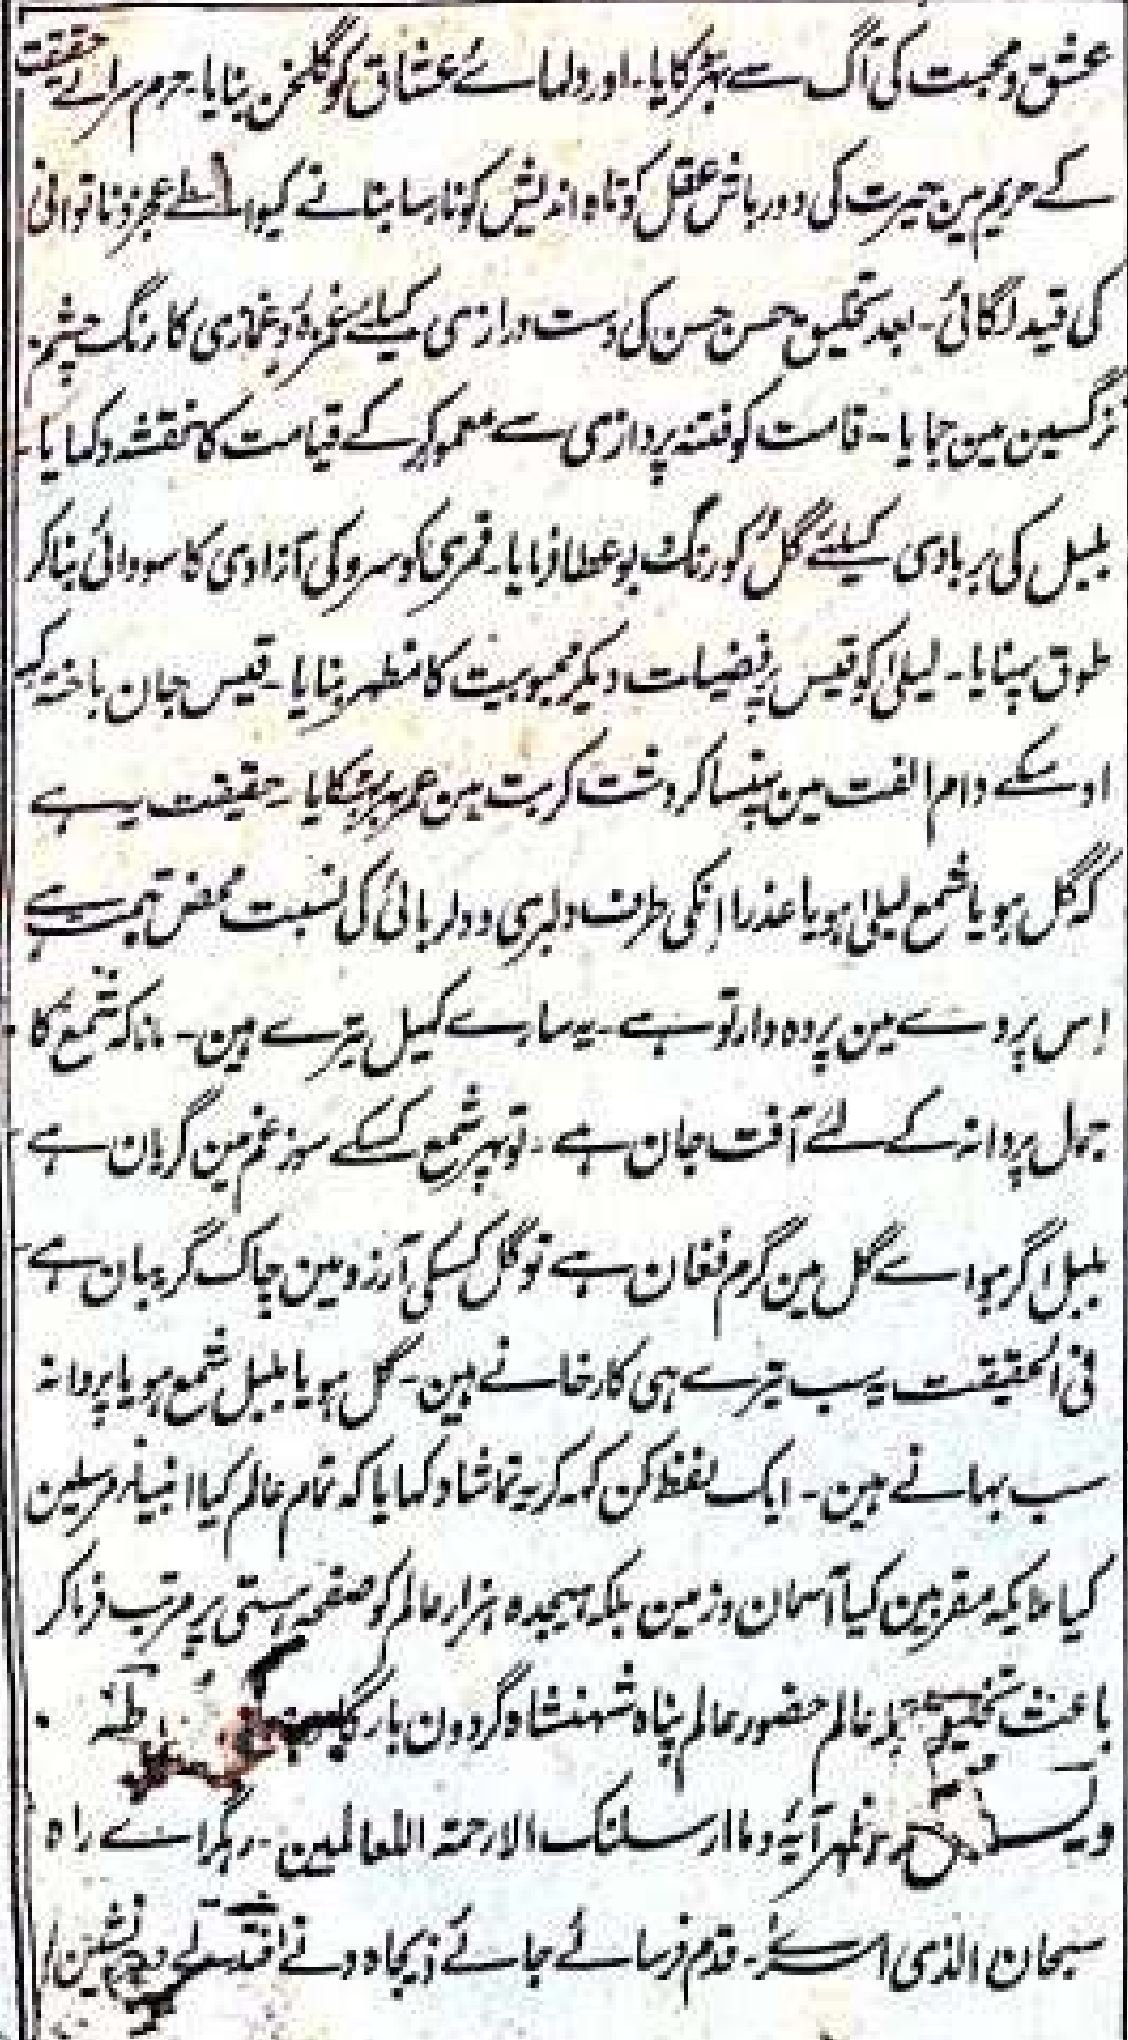 عشق و محبت کی آگ سے بھڑکایا۔ اور دلہائے عشاق کو گلخن بنایا۔ حرم سرائے حقیقت
کے حریم مین حیرت کی دورباش عقل کوتاہ اندیش کو نارسا بتانے کیواسطے عجز و ناتوانی
کی قید لگائی۔ بعد تخلیق حسن حسن کی دست درازی کیلئے غمزہ و غمازی کا رنگ چشم
نرگسین مین جمایا۔ قامت کو فتنہ پردازی سے معمور کر کے قیامت کا نقشہ دکھایا۔
بلبل کی بربادی کیلئے گل کو رنگ و بو عطا فرمایا۔ قمری کو سرو کی آزادی کا سودائی بنا کر
طوق پہنایا۔ لیلیٰ کو قیس پر فضیلت دیکر محبوبیت کا مظہر بنایا۔ قیس جان باختہ کو
اوسکے دام الفت مین پہنسا کر دشت کربت مین عمر بھر بھٹکایا۔ حقیقت یہ ہے
کہ گل ہو یا شمع لیلیٰ ہو یا عذرا انکی طرف دلبری و دلربائی کی نسبت محض تہمت ہے
اس پردے مین پردہ دار تو ہے۔ یہ سارے کھیل تیرے ہین۔ مانا کہ شمع کا
جمال پروانہ کے لئے آفت جان ہے۔ تو پہر شمع کسکے سوز غم مین گریان ہے
بلبل اگر ہوائے گل مین گرم فغان ہے تو گل کسکی آرزو مین چاک گریبان ہے
فی الحقیقت یہ سب تیرے ہی کارخانے ہین۔ گل ہو یا بلبل شمع ہو یا پروانہ
سب بہانے ہین۔ ایک لفظ کن کہہ کر یہ تماشا دکھایا کہ تمام عالم کیا انبیاء مرسلین
کیا ملایکہ مقربین کیا آسمان و زمین بلکہ ہیجدہ ہزار عالم کو صفحہ ہستی پر مرتب فرما کر
باعث تخلیق ہر عالم حضور عالم پناہ شہنشاہ گردون بارگاہ طٰہٰ
ویٰس مظہر آیۂ وما ارسلنک الا رحمۃ اللعالمین۔ رہگرائے راہ
سبحان الذی اسریٰ۔ قدم فرسائے جائے ذیجاہ دنے فتدلی نشین